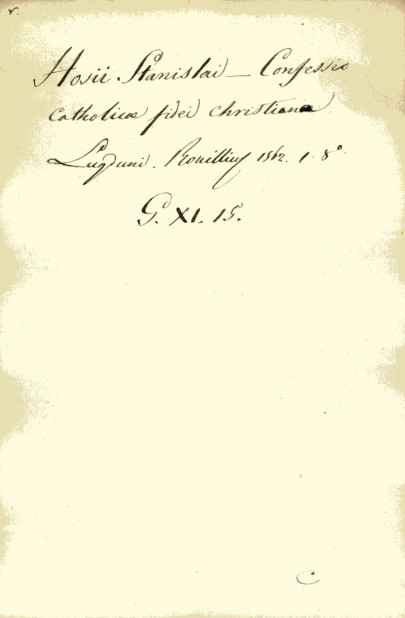 v.
Hosii Stanislai — Confessio
catholicae fidei christiana
Lugduni. Rouillius 1562. 1. 8°.
G. XI. 15.
C